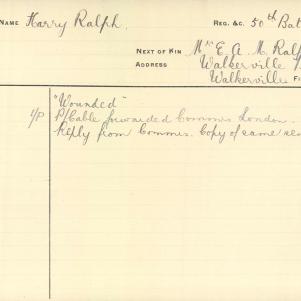 NAME Harry Ralph. REG. &C. 50th Bat
NEXT OF KIN Mrs E. A. M. Ralp
ADDRESS Walkerville
Walkerville
"Wounded"
P/Cable forwarded Commrs London.
Reply from Commrs. Copy of same